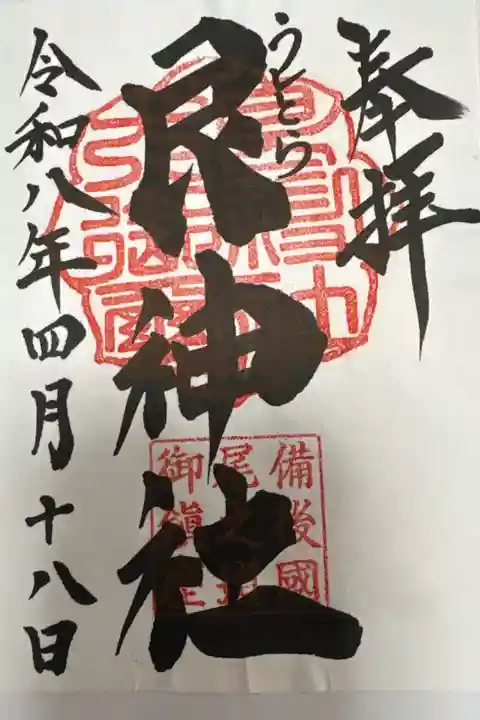 奉拝
うしとら
艮神社
備後國
尾之道
御鎮座
令和八年四月十八日